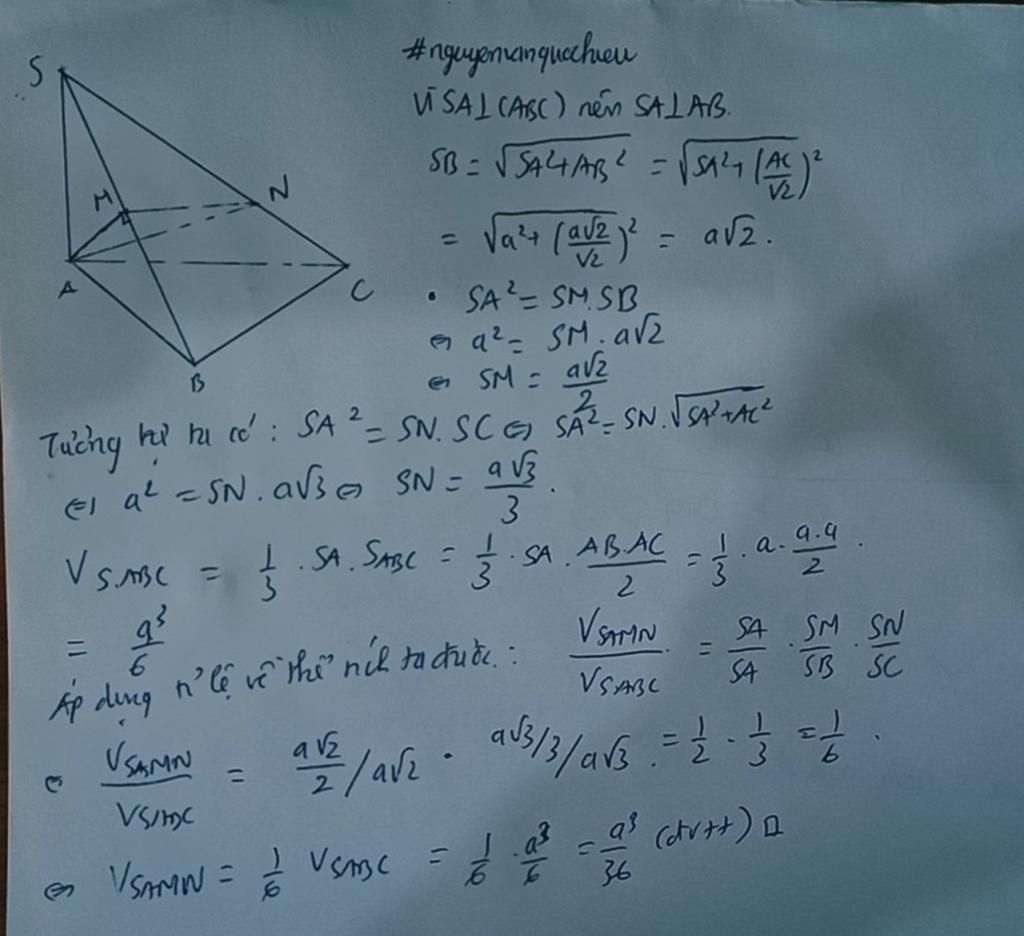 #nguyenanquochieu
S
Vì SA⊥(ABC) nên SA⊥AB.
SB = √(SA²+AB²) = √(SA²+(AC/√2)²)
M N
= √(a²+(a√2/√2)²) = a√2.
A C
• SA² = SM.SB
⇔ a² = SM.a√2
B
⇔ SM = a√2/2
Tương tự ta có: SA² = SN.SC ⇔ SA² = SN.√(SA²+AC²)
⇔ a² = SN.a√3 ⇔ SN = a√3/3.
V S.ABC = 1/3 . SA. SABC = 1/3 . SA . AB.AC/2 = 1/3 . a . a.a/2 .
= a³/6
Áp dụng tỉ lệ về thể tích ta được: VSAMN/VSABC = SA/SA . SM/SB . SN/SC
⇔ VSAMN/VSABC = a√2/2 /a√2 . a√3/3/a√3 . = 1/2 . 1/3 = 1/6 .
⇔ VSAMN = 1/6 VSABC = 1/6 . a³/6 = a³/36 (đvtt) □